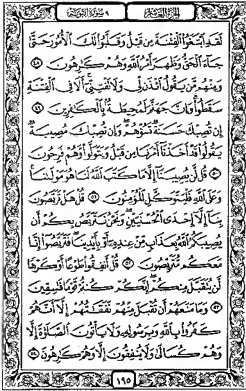 الجزء العاشر ٩ سورة التوبة
لَقَدِ ابْتَغَوُا الْفِتْنَةَ مِنْ قَبْلُ وَقَلَّبُوا لَكَ الْأُمُورَ حَتَّىٰ
جَاءَ الْحَقُّ وَظَهَرَ أَمْرُ اللَّهِ وَهُمْ كَارِهُونَ ﴿٤٨﴾
وَمِنْهُمْ مَنْ يَقُولُ ائْذَنْ لِي وَلَا تَفْتِنِّي أَلَا فِي الْفِتْنَةِ
سَقَطُوا وَإِنَّ جَهَنَّمَ لَمُحِيطَةٌ بِالْكَافِرِينَ ﴿٤٩﴾
إِنْ تُصِبْكَ حَسَنَةٌ تَسُؤْهُمْ وَإِنْ تُصِبْكَ مُصِيبَةٌ
يَقُولُوا قَدْ أَخَذْنَا أَمْرَنَا مِنْ قَبْلُ وَيَتَوَلَّوْا وَهُمْ فَرِحُونَ ﴿٥٠﴾
قُلْ لَنْ يُصِيبَنَا إِلَّا مَا كَتَبَ اللَّهُ لَنَا هُوَ مَوْلَانَا
وَعَلَى اللَّهِ فَلْيَتَوَكَّلِ الْمُؤْمِنُونَ ﴿٥١﴾ قُلْ هَلْ تَرَبَّصُونَ
بِنَا إِلَّا إِحْدَى الْحُسْنَيَيْنِ وَنَحْنُ نَتَرَبَّصُ بِكُمْ أَنْ
يُصِيبَكُمُ اللَّهُ بِعَذَابٍ مِنْ عِنْدِهِ أَوْ بِأَيْدِينَا فَتَرَبَّصُوا إِنَّا
مَعَكُمْ مُتَرَبِّصُونَ ﴿٥٢﴾ قُلْ أَنْفِقُوا طَوْعًا أَوْ كَرْهًا
لَنْ يُتَقَبَّلَ مِنْكُمْ إِنَّكُمْ كُنْتُمْ قَوْمًا فَاسِقِينَ
﴿٥٣﴾ وَمَا مَنَعَهُمْ أَنْ تُقْبَلَ مِنْهُمْ نَفَقَاتُهُمْ إِلَّا أَنَّهُمْ
كَفَرُوا بِاللَّهِ وَبِرَسُولِهِ وَلَا يَأْتُونَ الصَّلَاةَ إِلَّا
وَهُمْ كُسَالَىٰ وَلَا يُنْفِقُونَ إِلَّا وَهُمْ كَارِهُونَ ﴿٥٤﴾
١٩٥